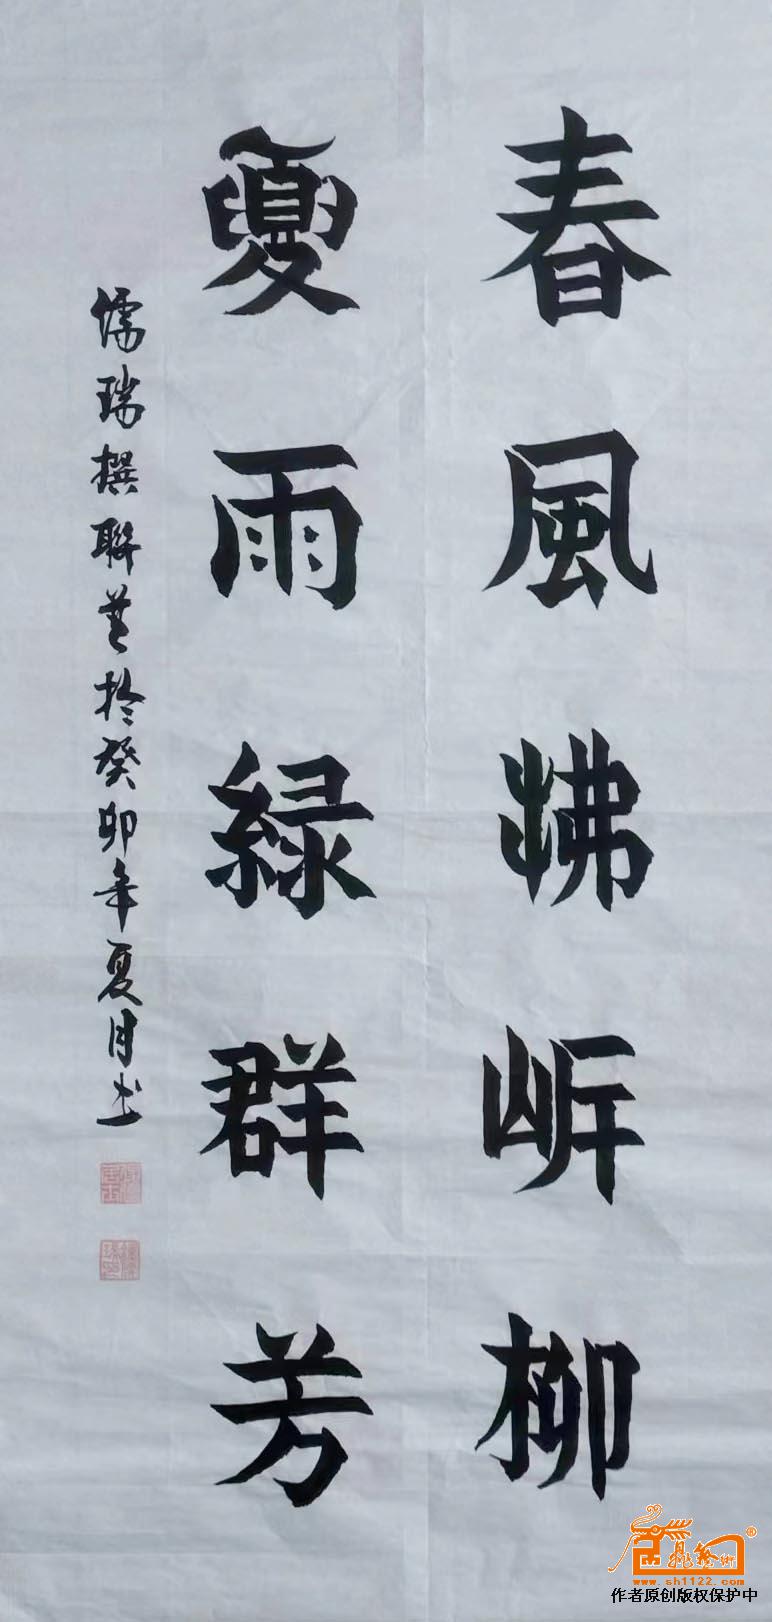 春風拂岸柳
夏雨緑群芳
儒瑞撰聯並於癸卯年夏月书
www.sh1122.com
作者原创版权保护中